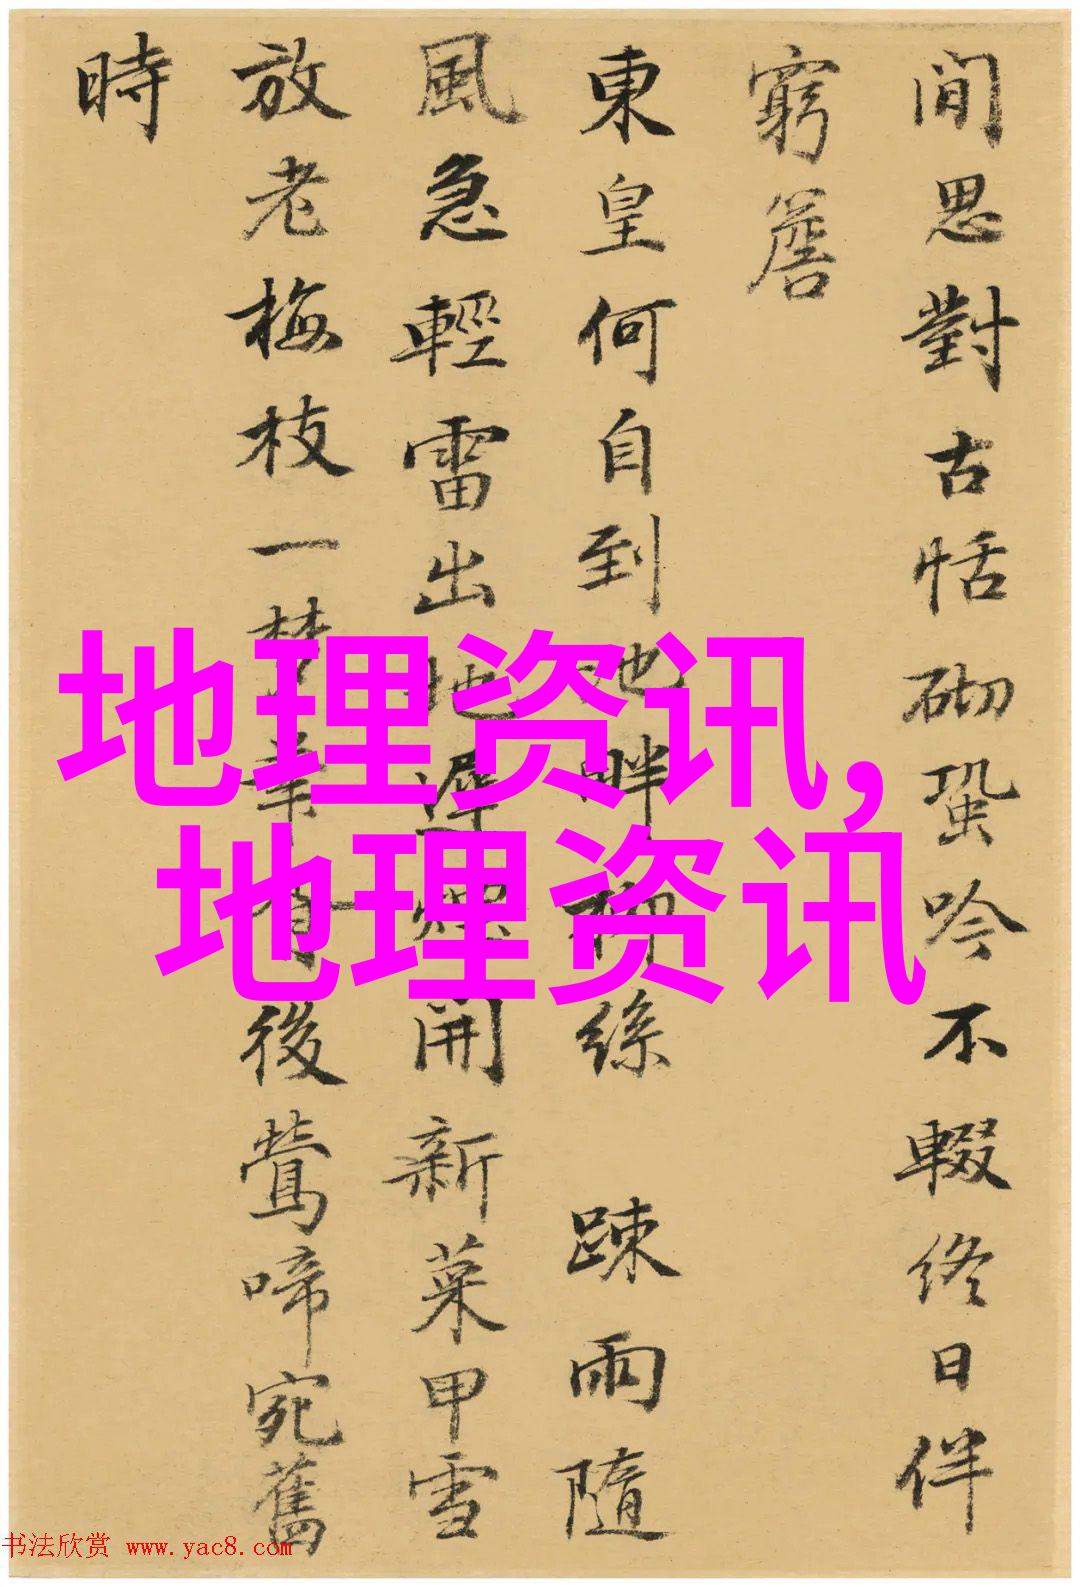 閒思對古恬砌蛩吟不輟終日伴
窮簷
東皇何自到池畔柳絲踈雨隨
風急輕雷出地遲煙開新菜甲雪
放老梅枝一夢華胥後鶯啼宛舊
時
地理资讯,
地理资讯
书法欣赏 www.yac8.com